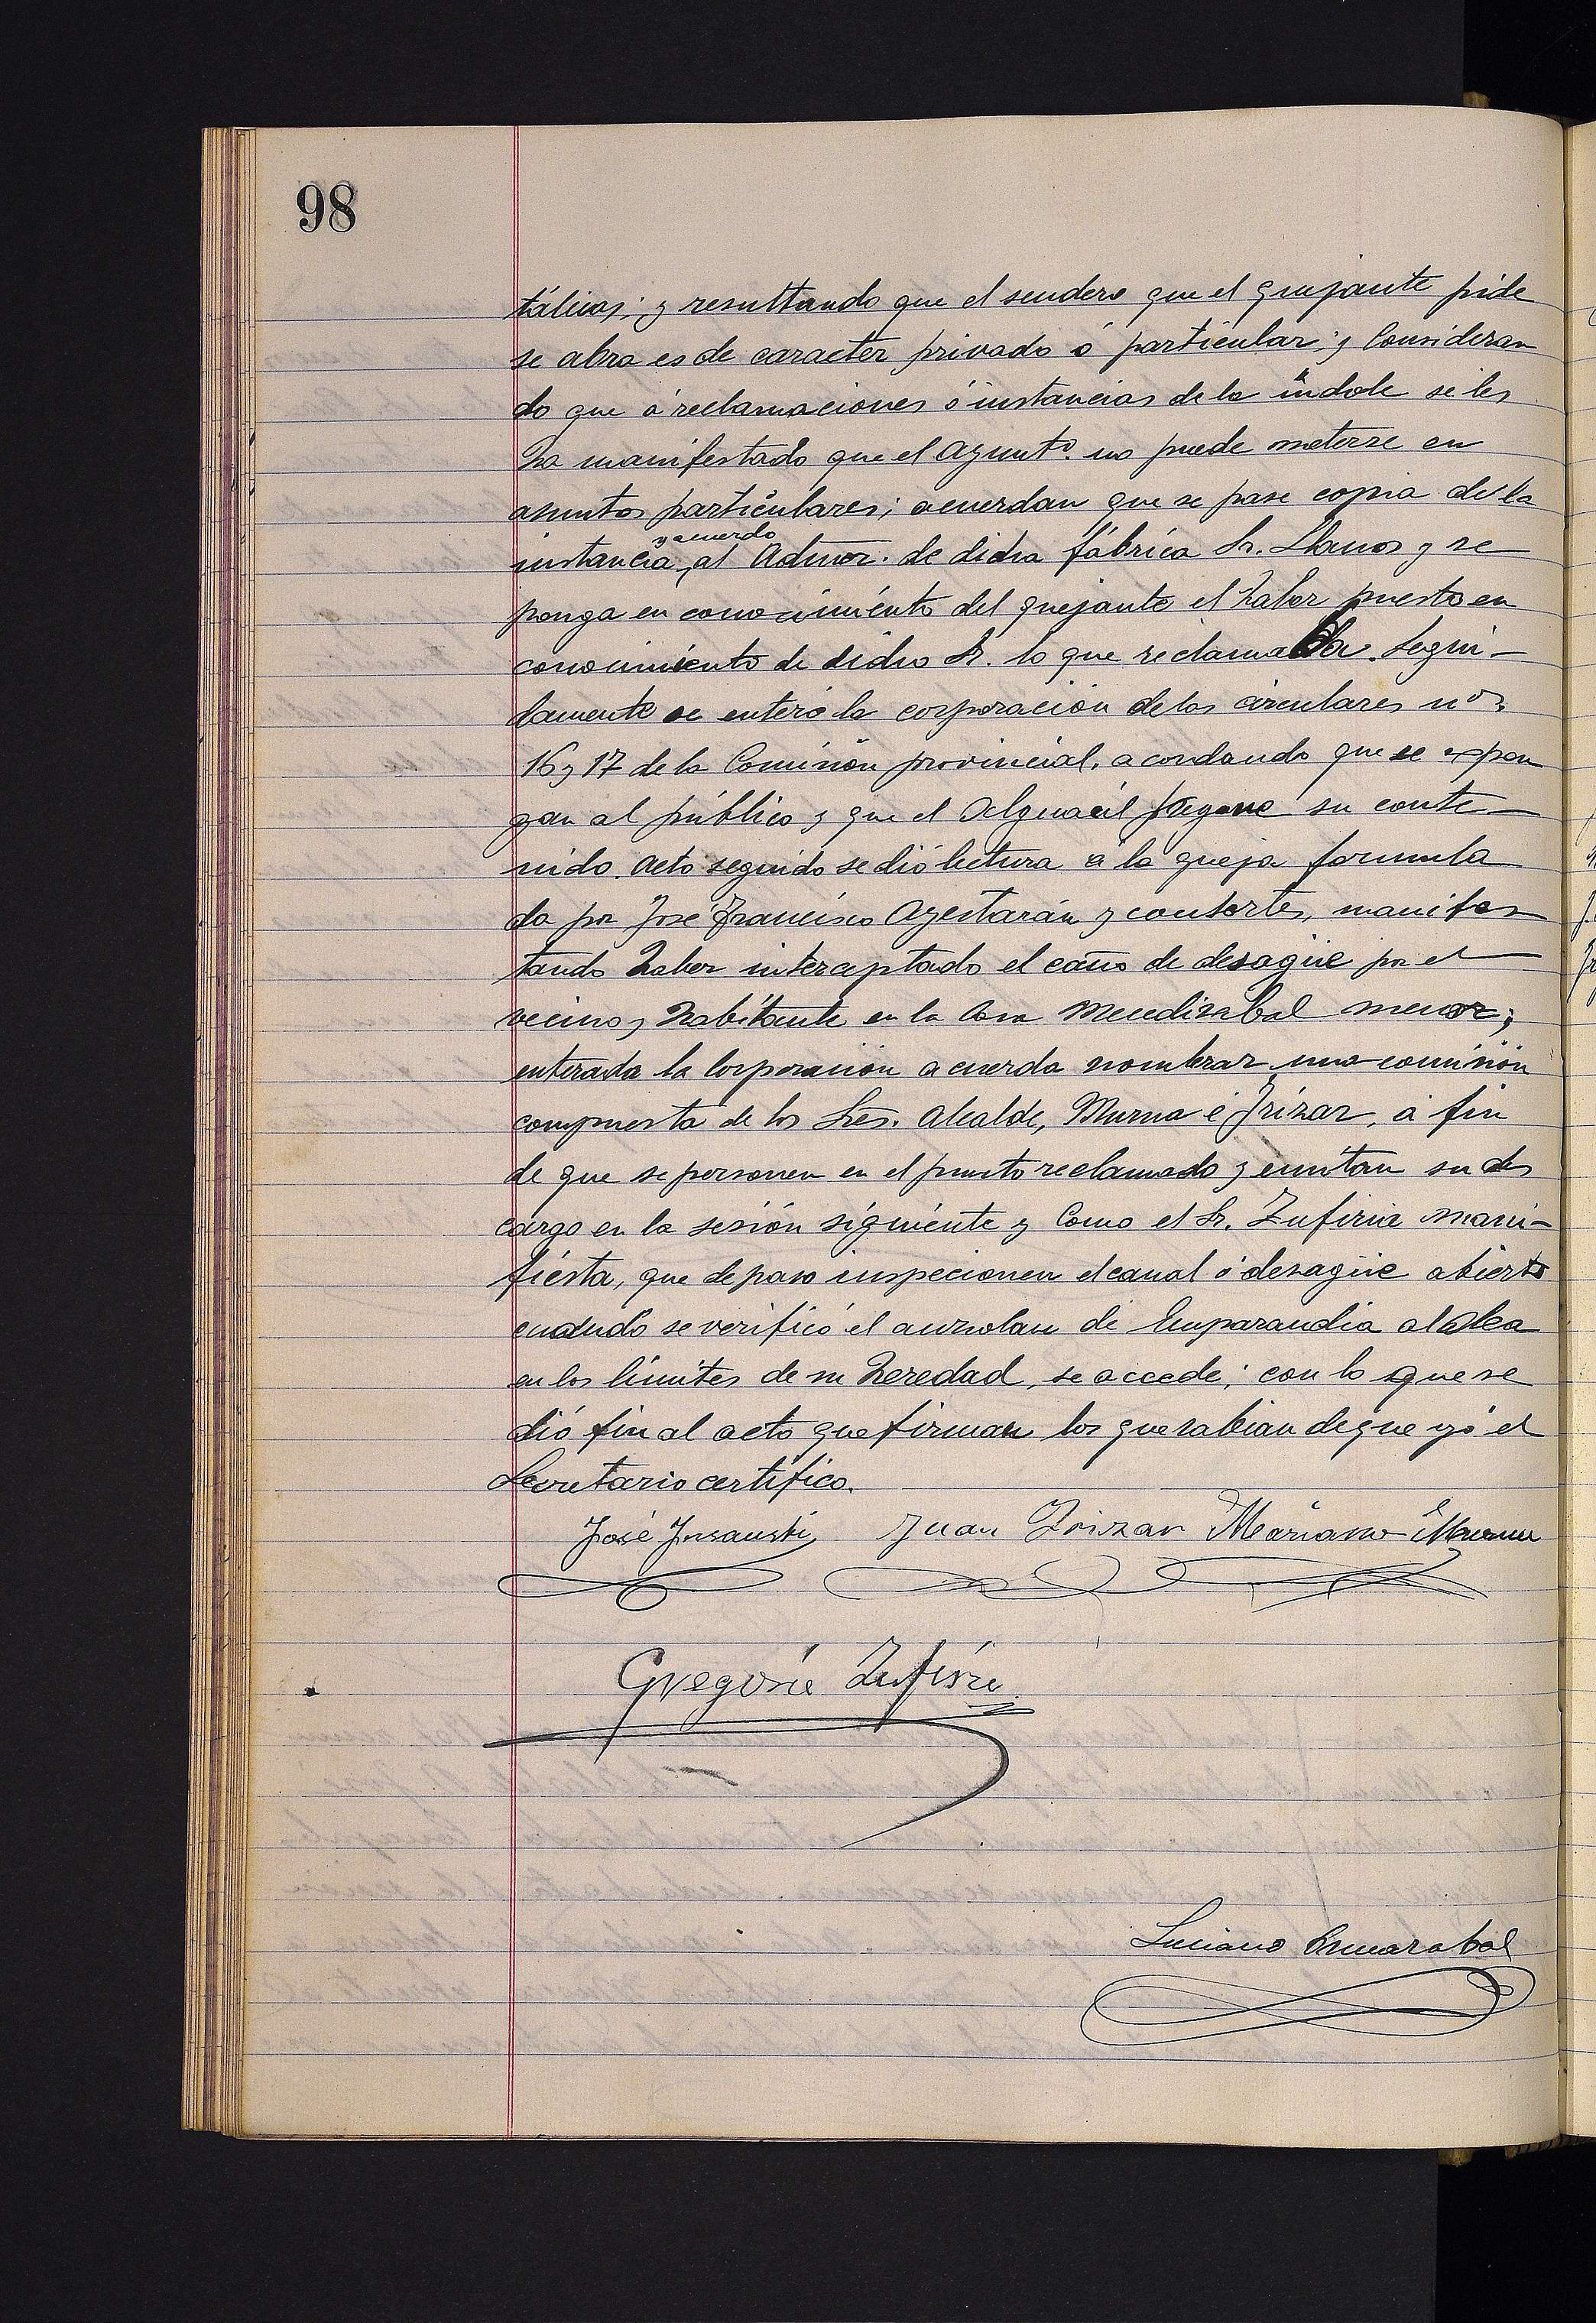 98
tálicas; y resultando que el sendero que el quejante pide
se abra es de caracter privado ó particular; y Consideran
do que á reclamaciones ó instancias de la índole se les
ha manifestado que el Ayuntº. no puede meterse en
asuntos particulares; acuerdan que se pase copia de la
y acuerdo
instancia, al Admor. de dicha fábrica Sr. Llanos y se
ponga en conocimiento del quejante el haber puesto en
conocimiento de dicho Sr. lo que reclamaba. Segui-
damente se enteró la corporación de las circulares nos.
16 y 17 de la Comisión provincial, acordando que se expon
gan al público y que el Alguacil pregone su conte-
nido. Acto seguido se dió lectura á la queja formula
da por José Francisco Ayestarán y consortes, manifes
tando haber interceptado el caño de desagüe por el
vecino y habitante en la Casa Mendizabal menor;
enterada la Corporación acuerda nombrar una comisión
compuesta de los Sres. Alcalde, Murua é Irizar, á fin
de que se personen en el punto reclamado y emitan su des
cargo en la sesión siguiente y Como el Sr. Zufiria mani-
fiesta, que de paso inspecionen el canal ó desagüe abierto
cuando se verificó el auzolan de Emparandia al Olea
en los límites de su heredad, se accede; con lo que se
dió fin al acto que firman los que sabian de que yó el
Secretario certifico.
José Insausti Juan Irizar Mariano Murua
Gregorio Zufiria
Luciano